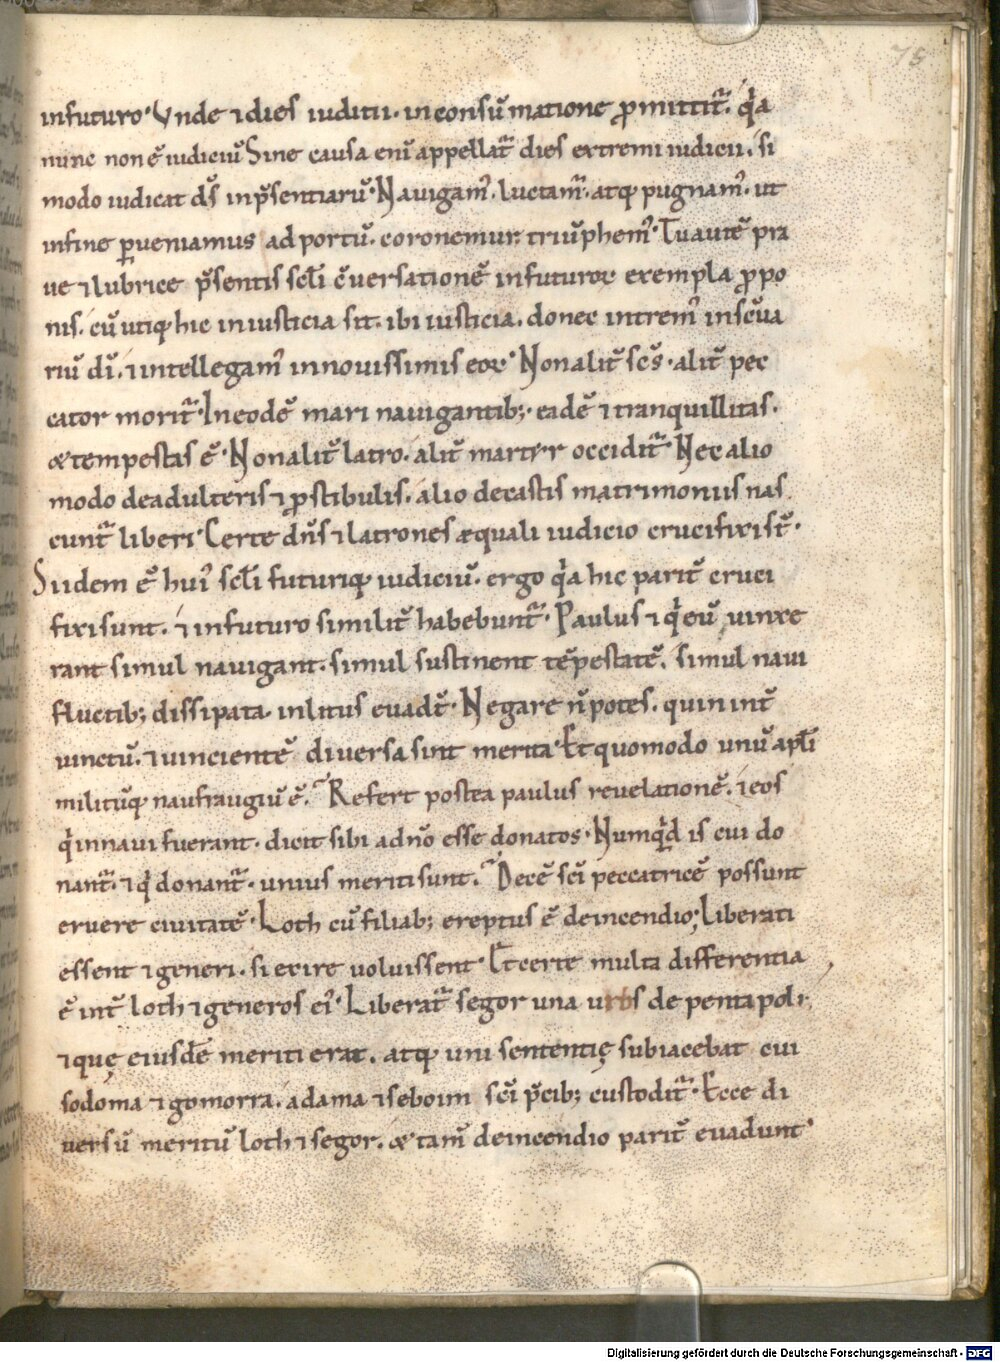 75
infuturo· Vnde &dies iuditii· inconsūmatione ꝓmittit̄· q̇a
nunc non ē iudiciū Sine causa eni appellat̄ dies extremi iudicii. si
modo iudicat ds̄ inp̄sentiarū· Nauigam̄· luctam̄· atq; pugnam̄· ut
infine ꝑueniamus ad portū· coronemur· triūphem̄· Tu autē pra
ue &lubrice p̄sentis sc̄li c̄uersationē infuturoꝝ exempla ꝓpo
nis· cū utiq; hic iniusticia sit· ibi iusticia· donec intrem̄ insc̄ua
riū dī· &intellegam̄ innouissimis eoꝝ· Non alit̄ sc̄s· alit̄ pec
cator morit̄· In eodē mari nauigantib; eadē & tranquillitas·
&tempestas ē· Non alit̄ latro· alit̄ martyr occidit̄· Nec alio
modo deadulteris &ꝓstibulis· alio decastis matrimoniis nas
cunt̄ liberi· Certe dn̄s &latrones æquali iudicio crucifixi st̄·
Si idem ē hui' sc̄li futuriq; iudiciū· ergo q̇a hic parit̄ cruci
fixi sunt· & infuturo similit̄ habebunt̄· Paulus & q̇ eū uinxe
rant simul nauigant· simul sustinent tēpestatē· simul naui
fluctib; dissipata inlitus euadt̄· Negare n̄ potes· quin int̄
uinctū· & uincientē diuersa sint merita· Et quomodo unū apl̄i
militūq; naufraugiū ē? Refert postea paulus reuelationē· & eos
q̇ innaui fuerant· dicit sibi adn̄o esse donatos· Numq̇d is cui do
nant̄· & q̇ donant̄· unius meriti sunt? Decē sc̄i peccatricē possunt
eruere ciuitatē· Loth cū filiab; ereptus ē deincendio; Liberati
essent &generi· si exire uoluissent· Et certe multa differentia
ē int̄ loth &generos ei'· Liberat̄ segor una urbs de pentapoli·
&quę eiusdē meriti erat· atq; uni sententię subiacebat cui
sodoma &gomorra· adama &seboim sc̄i p̄cib; custodit̄· Ecce di
uersū meritū loth &segor· & tam̄ deincendio parit̄ euadunt·
Digitalisierung gefördert durch die Deutsche Forschungsgemeinschaft - DFG